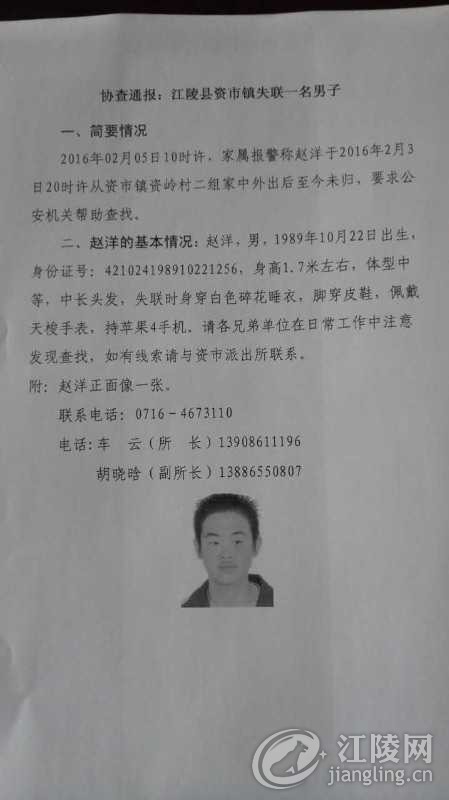 协查通报：江陵县资市镇失联一名男子
一、简要情况
2016年02月05日10时许，家属报警称赵洋于2016年2月3
日20时许从资市镇资岭村二组家中外出后至今未归，要求公
安机关帮助查找。
二、赵洋的基本情况：赵洋，男，1989年10月22日出生，
身份证号：421024198910221256，身高1.7米左右，体型中
等，中长头发，失联时身穿白色碎花睡衣，脚穿皮鞋，佩戴
天梭手表，持苹果4手机。请各兄弟单位在日常工作中注意
发现查找，如有线索请与资市派出所联系。
附：赵洋正面像一张。
联系电话：0716－4673110
电话:车　云（所　长）13908611196
胡晓晗（副所长）13886550807
江陵网
jiangling.cn